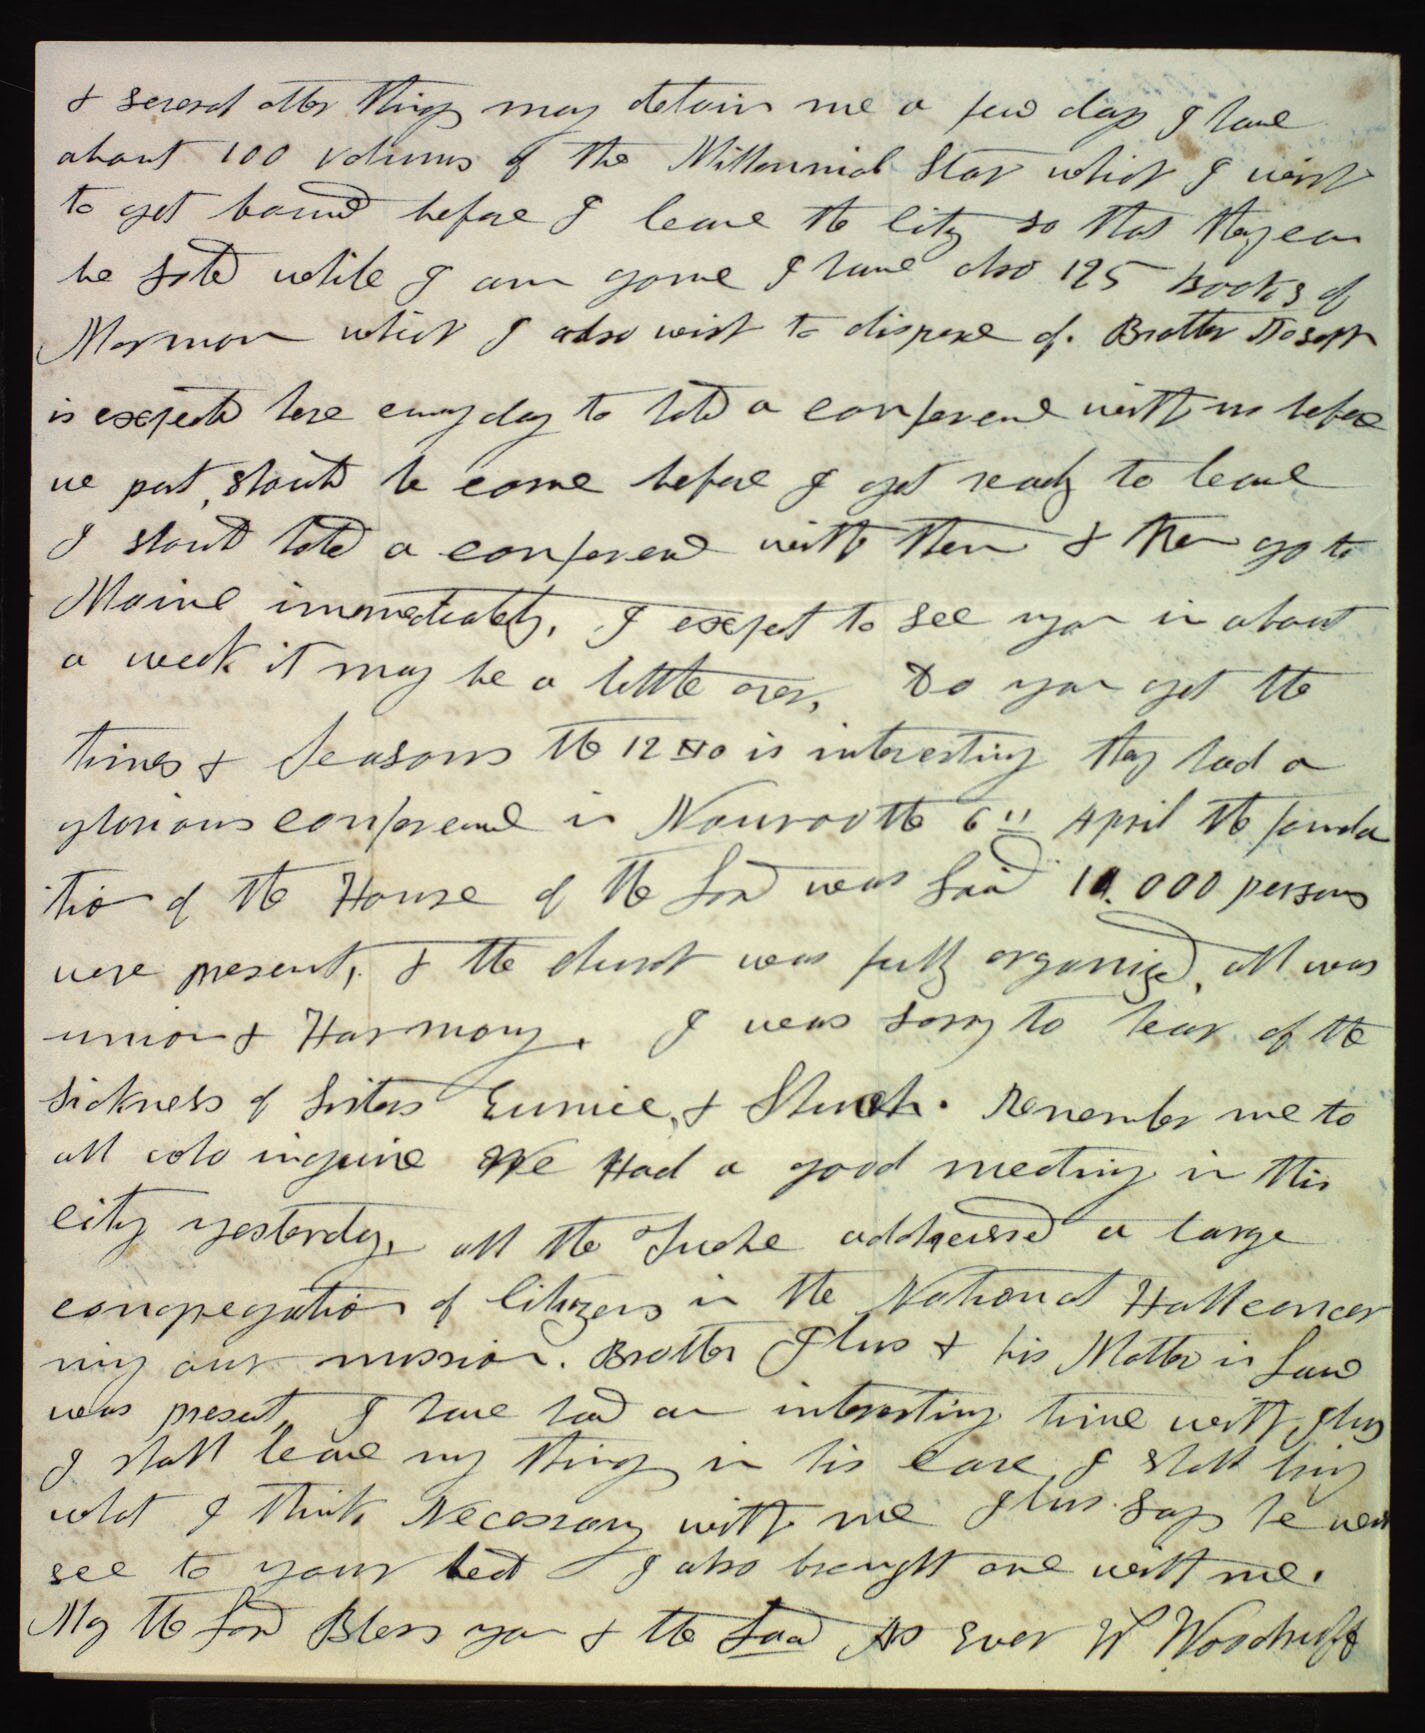 & several other things may detain me a few days I have
about 100 volums of the Millennial Star which I wish
to get bound before I leave the City so that they can
be sold while I am gone I have also 125 Books of
Mormon which I also wish to dispose of. Brother Joseph
is expected here evry day to hold a conference with us before
we part, should he come before I get ready to leave
I should hold a conference with them & then go to
Maine immediately, I expect to see you in about
a week it may be a little over, Do you get the
times & Seasons the 12 No is interesting they had a
glorious conference in Nauvoo the 6th April the founda
tion of the House of the Lord was laid 10.000 persons
were present, & the church was fully organized, all was
union & Harmony. I was sorry to hear of the
sickness of Sisters Eunice, & Remember me to
all who inquire We Had a good meeting in this
city yesterday, all the addressed a large
congregation of Citizens in the National Hall concer
ning our mission. Brother Ilus & his Mother in Law
was present, I have had an interesting time with Ilus
I shall leave my things in his care, I shall bring
what I think Necessary with me Ilus says he will
see to your bed I also brought one with me.
May the Lord Bless you & the As Ever W Woodruff